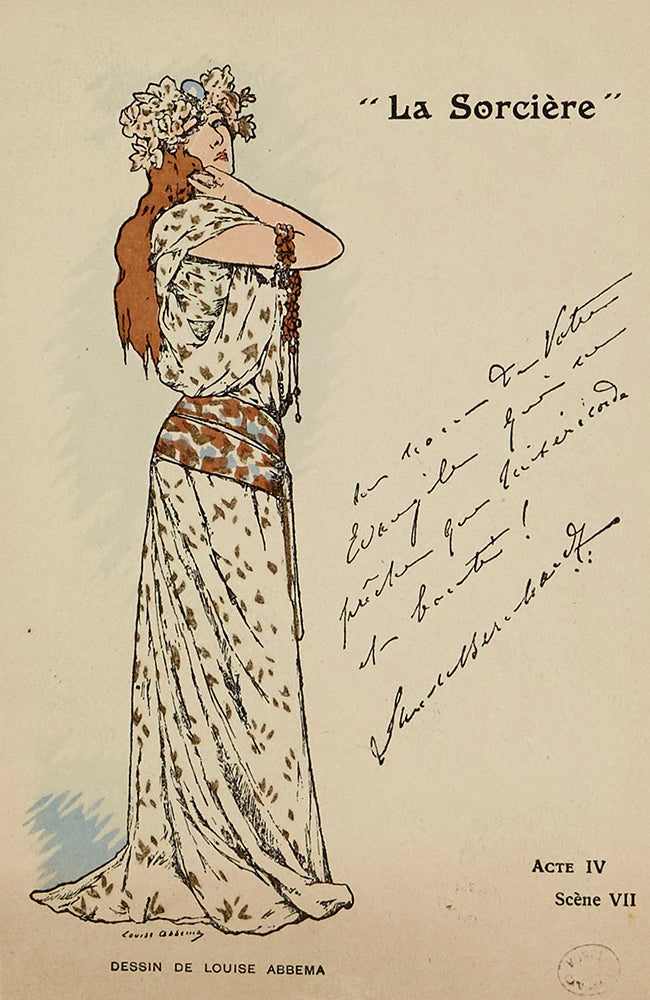 "La Sorcière"
au nom de Votre
Évangile qui ne
prêche que miséricorde
et bonté !
Sarah Bernhardt
Louise Abbema
DESSIN DE LOUISE ABBEMA
ACTE IV
Scène VII